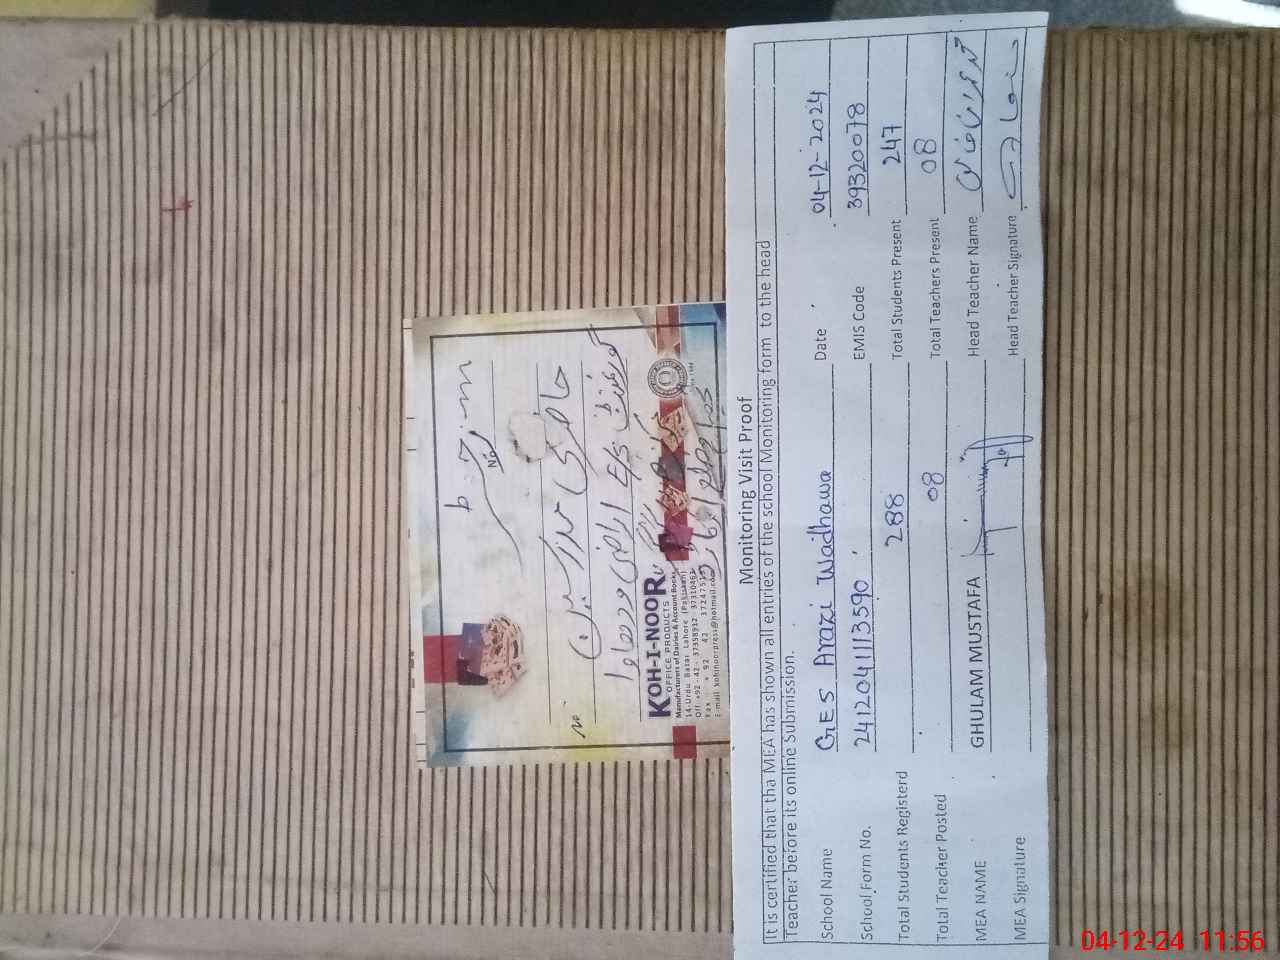 No.
حاضری مدرسین
گورنمنٹ E/S اراضی ودھاوا
KOH-I-NOOR
OFFICE PRODUCTS
Manufacturers of Dairies & Account Books
14-Urdu Bazar Lahore (Pakistan)
Off +92 - 42 - 37358912 37310463
Fax : + 92 42 3724751
E-mail kohinoorpress@hotmail.com
Monitoring Visit Proof
It is certified that tha MEA has shown all entries of the school Monitoring form to the head
Teacher before its online Submission.
School Name GES Arazi Wadhawa Date 04-12-2024
School Form No. 2412041113590 EMIS Code 39320078
Total Students Registerd 288 Total Students Present 247
Total Teacher Posted 08 Total Teachers Present 08
MEA NAME GHULAM MUSTAFA Head Teacher Name
MEA Signature Head Teacher Signature
04-12-24 11:56